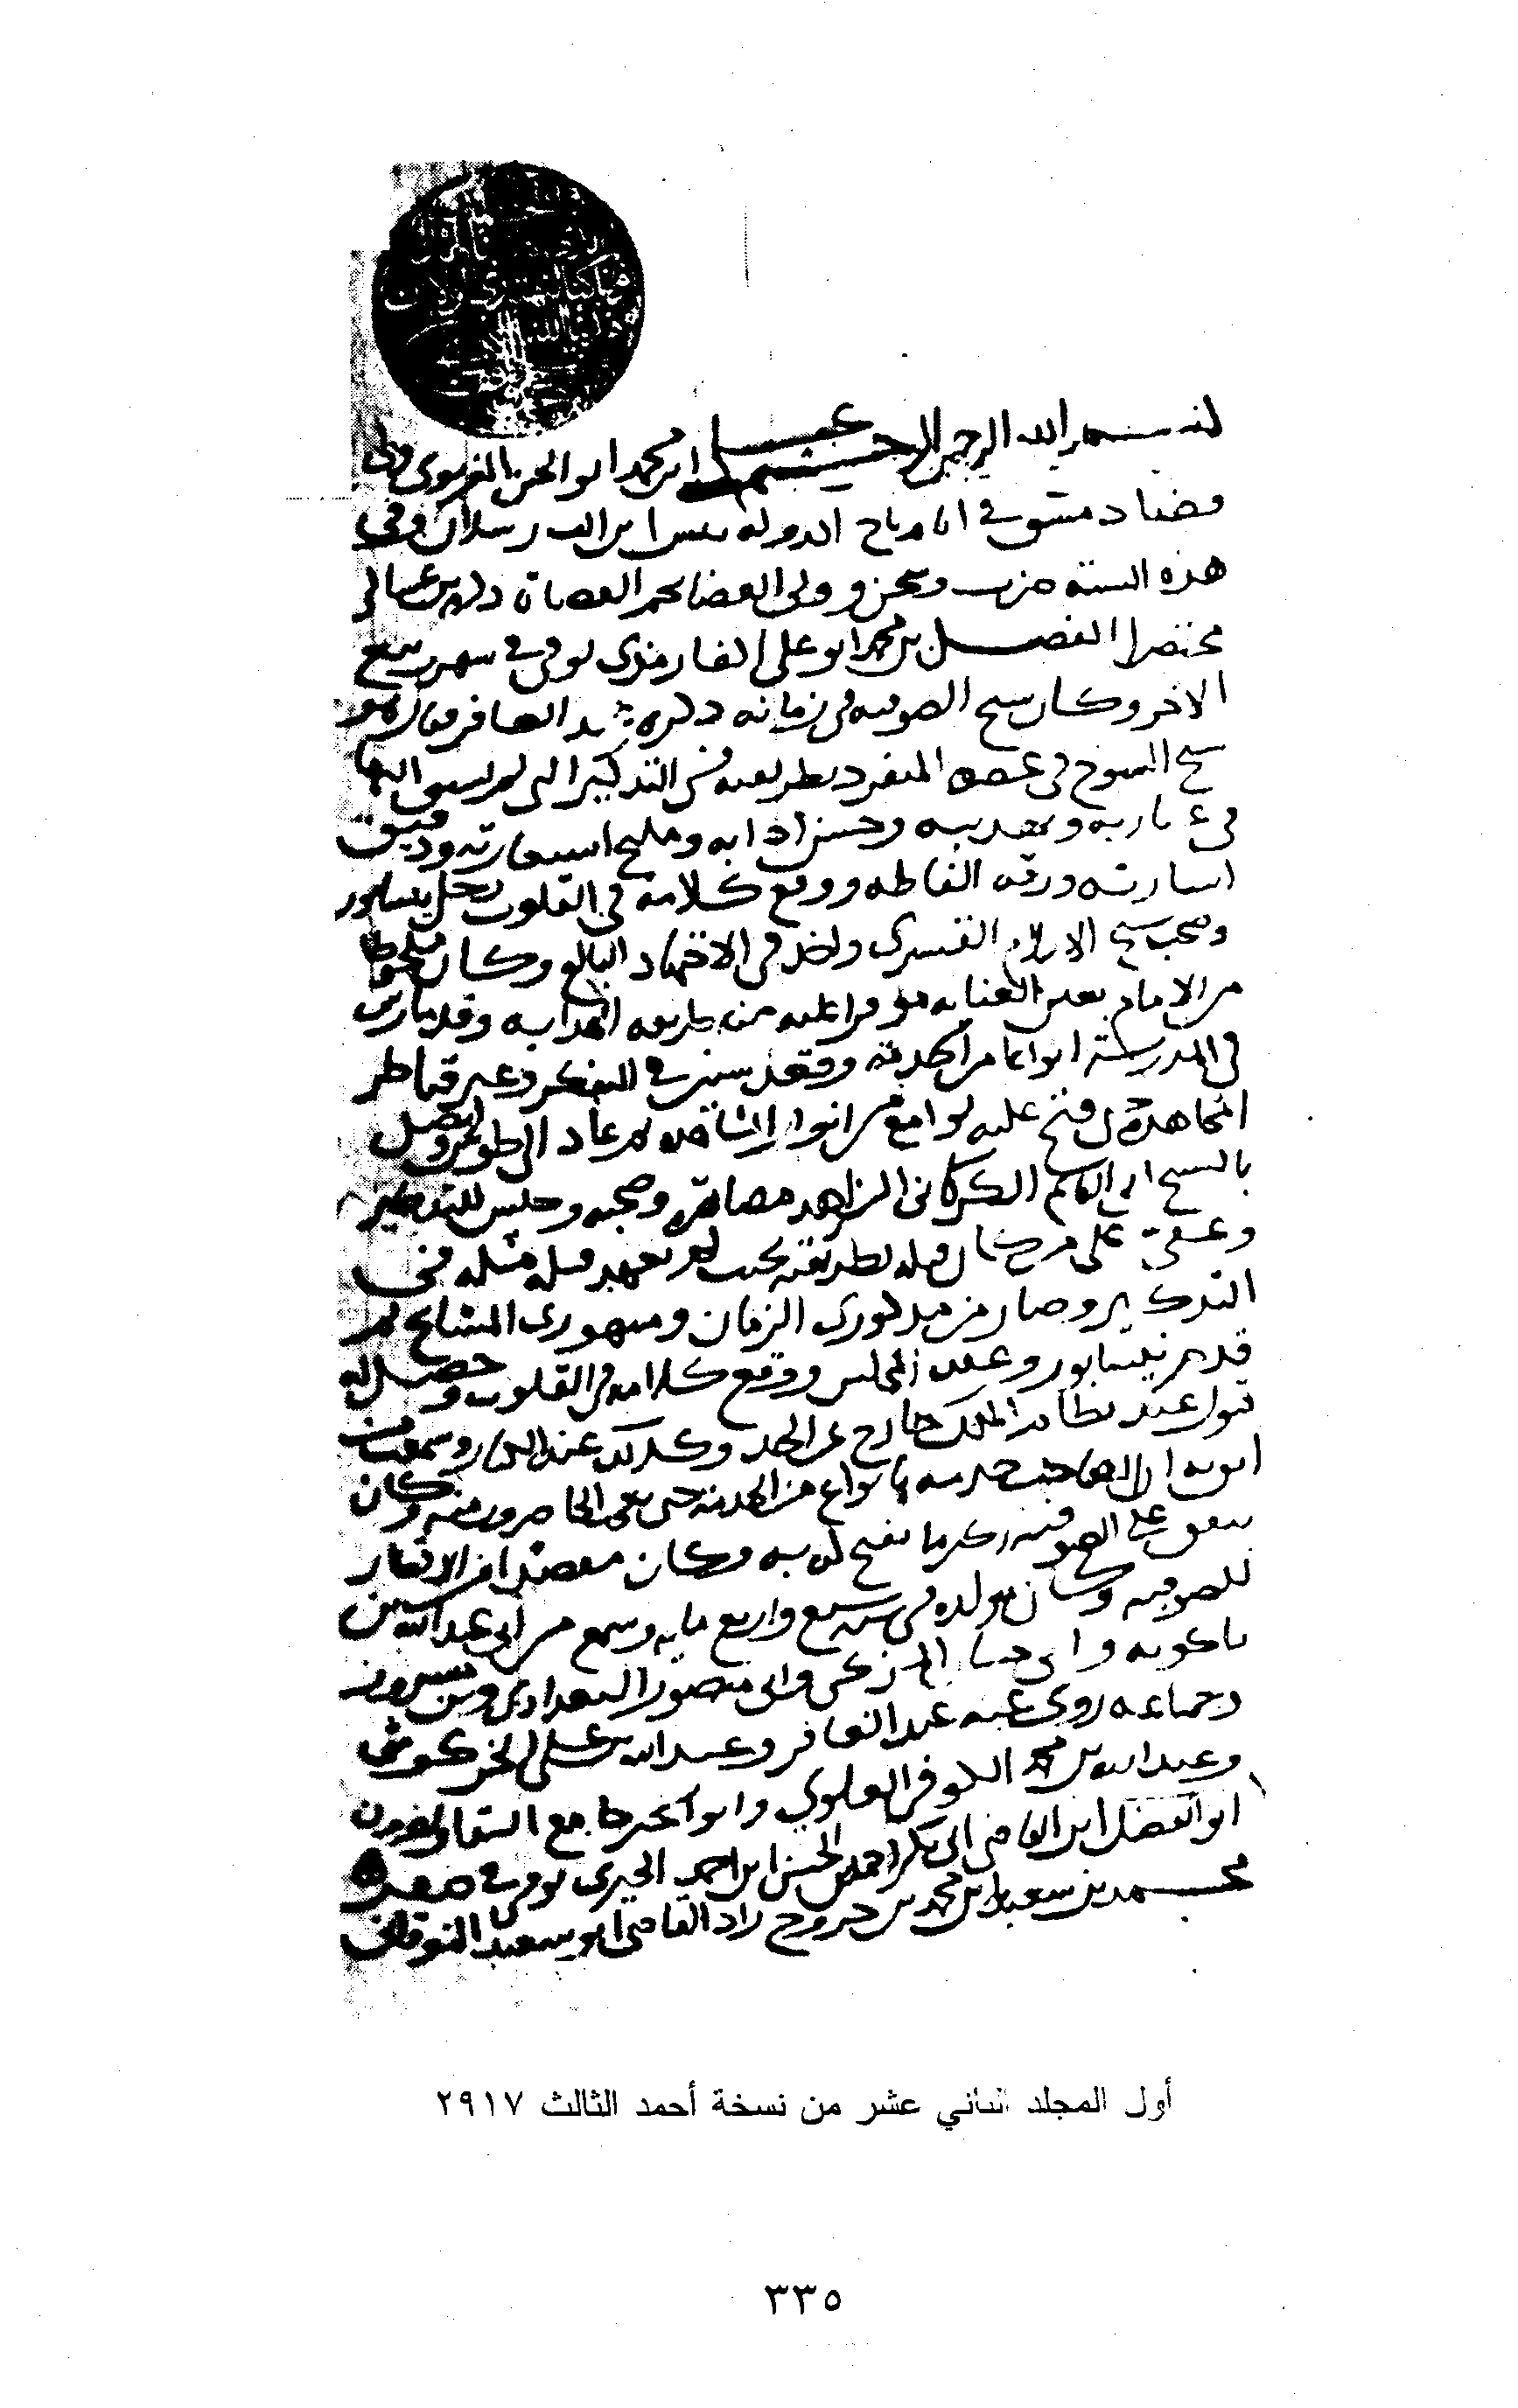 بسم الله الرحمن الرحيم ابن محمد ابو الحسن الغزنوي ولي
قضا دمشق في ايام تاج الدولة تتش ابن الب رسلان وفي
هذه السنة وسجن وولي القضا نجم القضاة
مختصرا الفضل بن محمد ابو علي الفارمذي توفي في شهر ربيع
الاخر وكان شيخ الصوفية في زمانه ذكره عبد الغافر فقال هو
شيخ الشيوخ في عصره المنفرد بطريقته في التذكير التي لم يسبق اليها
في عبارته وتهذيبه وحسن ادابه ومليح استعارته ودقيق
اشارته ورقة الفاظه ووقع كلامه في القلوب دخل نيسابور
وصحب القشيري واخذ في الاجتهاد البالغ وكان ملحوظا
من الامام بعين العناية موفرا عليه من طريقة الهداية وقد مارس
في المدرسة انواعا من الخدمة وقعد سنين في التفكر وعبر قناطر
المجاهدة حتى فتح عليه لوامع من انوار المشاهدة ثم عاد الى طوس واتصل
بالشيخ ابي القاسم الكركاني الزاهد مصاهرة وصحبة وجلس للتذكير
وعفى على من كان قبله بطريقته بحيث لم يعهد قبله مثله في
التذكير وصار من مذكوري الزمان ومشهوري المشايخ ثم
قدم نيسابور وعقد المجلس ووقع كلامه في القلوب وحصل له
قبول عند نظام الملك خارج عن الحد وكذلك عند الكبار وسمعت ممن
اثق به ان الصاحب خدمه بانواع من الخدمة حتى تعجب الحاضرون منه وكان
ينفق على الصوفية اكثر ما يفتح له به وكان مقصدا من الاقطار
للصوفية وكان مولده في سنة سبع واربع ماية وسمع من ابي عبد الله بن
باكويه وابي حسان المزكي وابي منصور البغدادي وابن مسرور
وجماعة روى عنه عبد الغافر وعبد الله بن علي الخركوشي
وعبد الله بن محمد الكوفي العلوي وابو الخير جامع السقا واخرون
ابو الفضل ابن القاضي ابي بكر احمد بن الحسن ابن احمد الحيري توفي في صفر
محمد بن سعيد بن محمد بن فروخ زاد القاضي ابو سعيد النوقاني
أول المجلد الثاني عشر من نسخة أحمد الثالث ٢٩١٧
٣٣٥